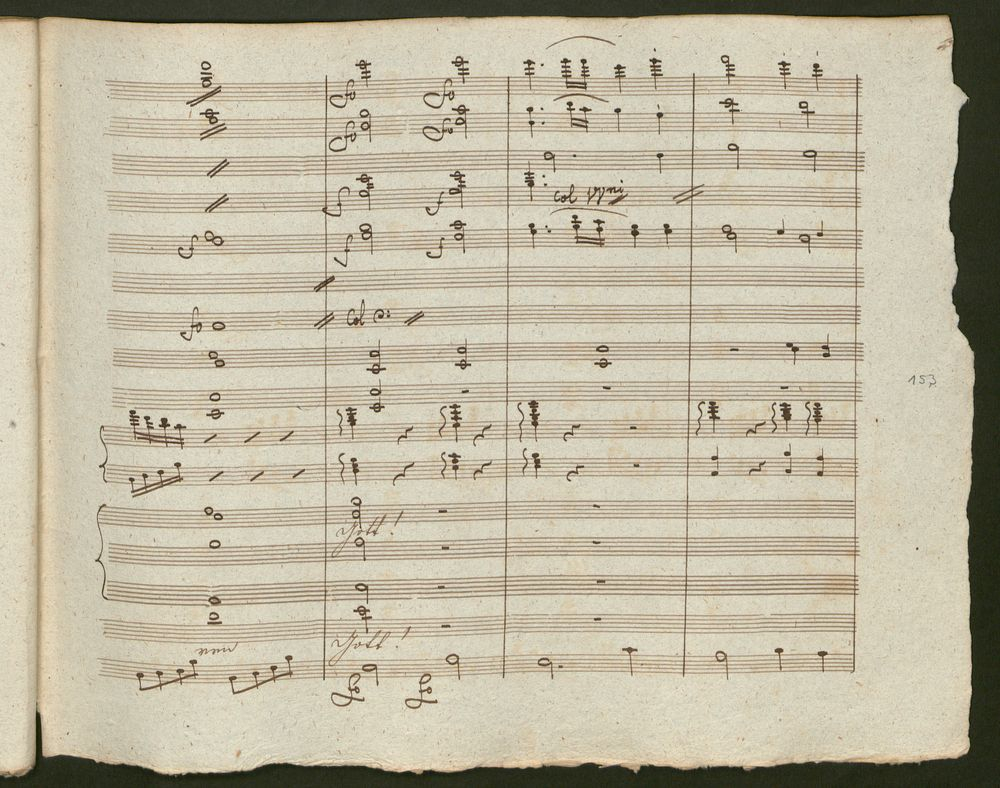 col VVni
Col
153
Gott!
Gott!